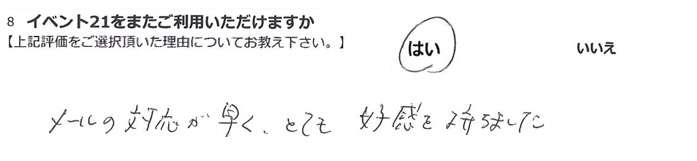 8 イベント21をまたご利用いただけますか
【上記評価をご選択頂いた理由についてお教え下さい。】
はい いいえ
メールの対応が早く、とても 好感を持ちました